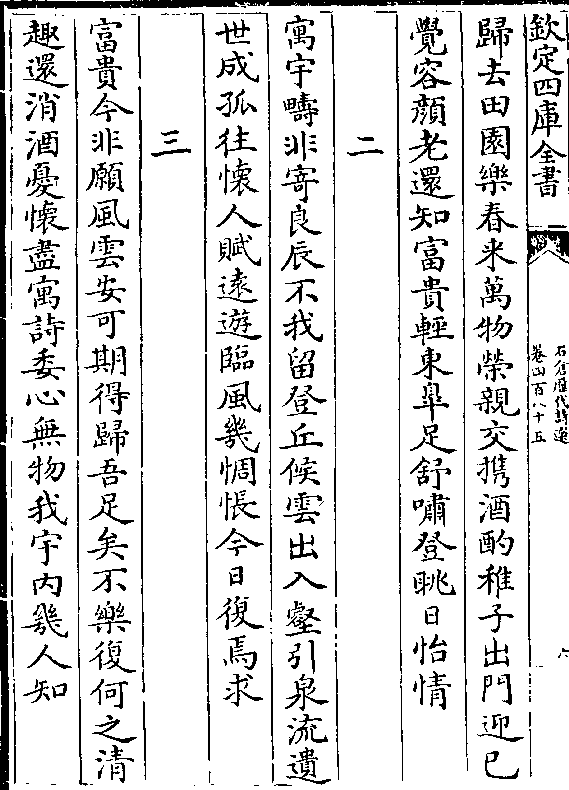 欽定四庫全書
石倉歷代詩選
卷四百八十五
六
歸去田園樂春来萬物榮親交携酒酌稚子出門迎已
覺容顔老還知富貴輕東臯足舒嘯登眺日怡情
二
寓宇疇非寄良辰不我留登丘候雲出入壑引泉流遺
世成孤往懷人賦逺遊臨風幾惆悵今日復焉求
三
富貴今非願風雲安可期得歸吾足矣不樂復何之清
趣還消酒憂懷盡寓詩委心無物我宇内幾人知